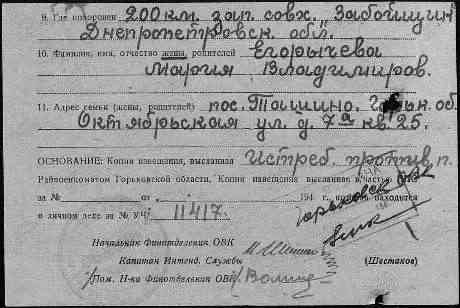 9. Где похоронен 200 км. зап. совх. "Забойщик"
Днепропетровск. обл.
10. Фамилия, имя, отчество жены, родителей Егорычева
Мария Владимиров.
11. Адрес семьи (жены, родителей) пос. Ташино, Горьк. об.
Октябрьская ул. д. 7а кв. 25.
ОСНОВАНИЕ: Копия извещения, высланная Истреб. против. п.
Райвоенкоматом Горьковской области. Копия извещения высланная в/частью
за № от 194 г. которая находится
в личном деле за № УЧ: 11417.
Горьковск ОВК
Начальник Финотделения ОВК
Капитан Интенд. Службы (Шестаков)
/Пом. Н-ка Финотделения ОВК/